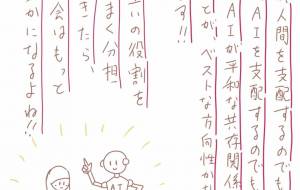 人間を支配するのでも
AIを支配するのでも
AIが平和な共存関係
とが、ベストな方向性か
す!!
いの役割を
まく分担
きたら、
会はもっと
かになるよね!!
AI